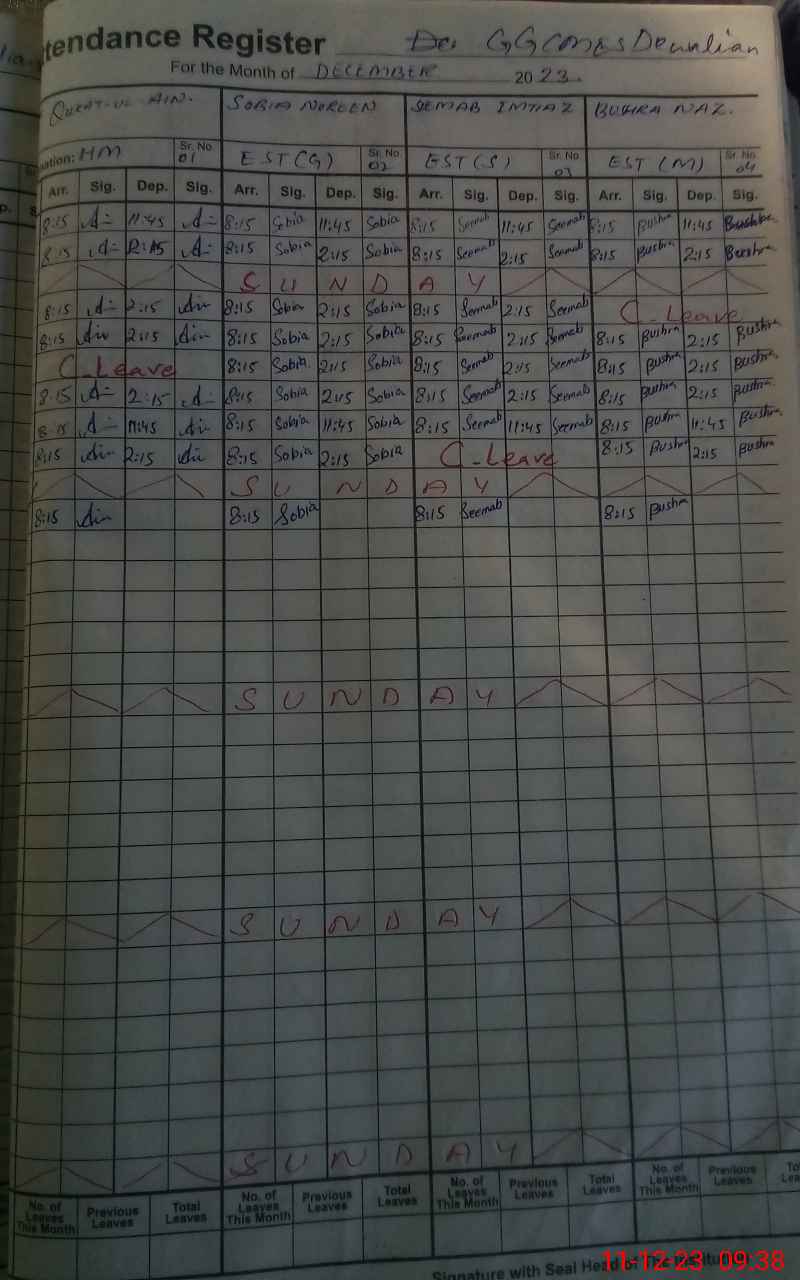 ttendance Register De. GGCMES Dewalian
For the Month of DECEMBER 2023.
QURAT-UL-AIN. SOBIA NOREEN SEMAB IMTIAZ BUSHRA NAZ.
nation: HM Sr. No. 01 EST(G) Sr. No. 02 EST(S) Sr. No. 03 EST (M) Sr. No. 04
Arr. Sig. Dep. Sig. Arr. Sig. Dep. Sig. Arr. Sig. Dep. Sig. Arr. Sig. Dep. Sig.
8:15 11:45 8:15 Sobia 11:45 Sobia 8:15 Seemab 11:45 Seemab 8:15 Bushra 11:45 Bushra
8:15 2:15 8:15 Sobia 2:15 Sobia 8:15 Seemab 2:15 Seemab 8:15 Bushra 2:15 Bushra
S U N D A Y
8:15 2:15 Ain 8:15 Sobia 2:15 Sobia 8:15 Seemab 2:15 Seemab C-Leave
8:15 Ain 2:15 Ain 8:15 Sobia 2:15 Sobia 8:15 Seemab 2:15 Seemab 8:15 Bushra 2:15 Bushra
C-Leave 8:15 Sobia 2:15 Sobia 8:15 Seemab 2:15 Seemab 8:15 Bushra 2:15 Bushra
8:15 2:15 8:15 Sobia 2:15 Sobia 8:15 Seemab 2:15 Seemab 8:15 Bushra 2:15 Bushra
8:15 11:45 Ain 8:15 Sobia 11:45 Sobia 8:15 Seemab 11:45 Seemab 8:15 Bushra 11:45 Bushra
8:15 Ain 2:15 Ain 8:15 Sobia 2:15 Sobia C-Leave 8:15 Bushra 2:15 Bushra
S U N D A Y
8:15 Ain 8:15 Sobia 8:15 Seemab 8:15 Bushra
S U N D A Y
S U N D A Y
S U N D A Y
No. of Leaves This Month Previous Leaves Total Leaves No. of Leaves This Month Previous Leaves Total Leaves No. of Leaves This Month Previous Leaves Total Leaves No. of Leaves This Month Previous Leaves To Lea
Signature with Seal Head of The Institution
11-12-23 09:38